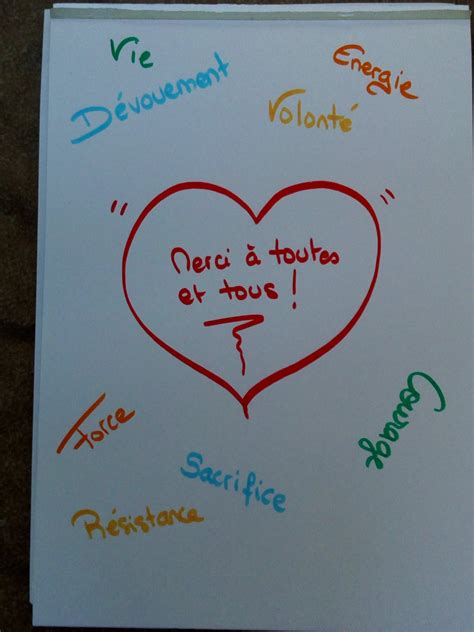 Vie
Energie
Dévouement
Volonté
Merci à toutes
et tous !
Force
Courage
Sacrifice
Résistance